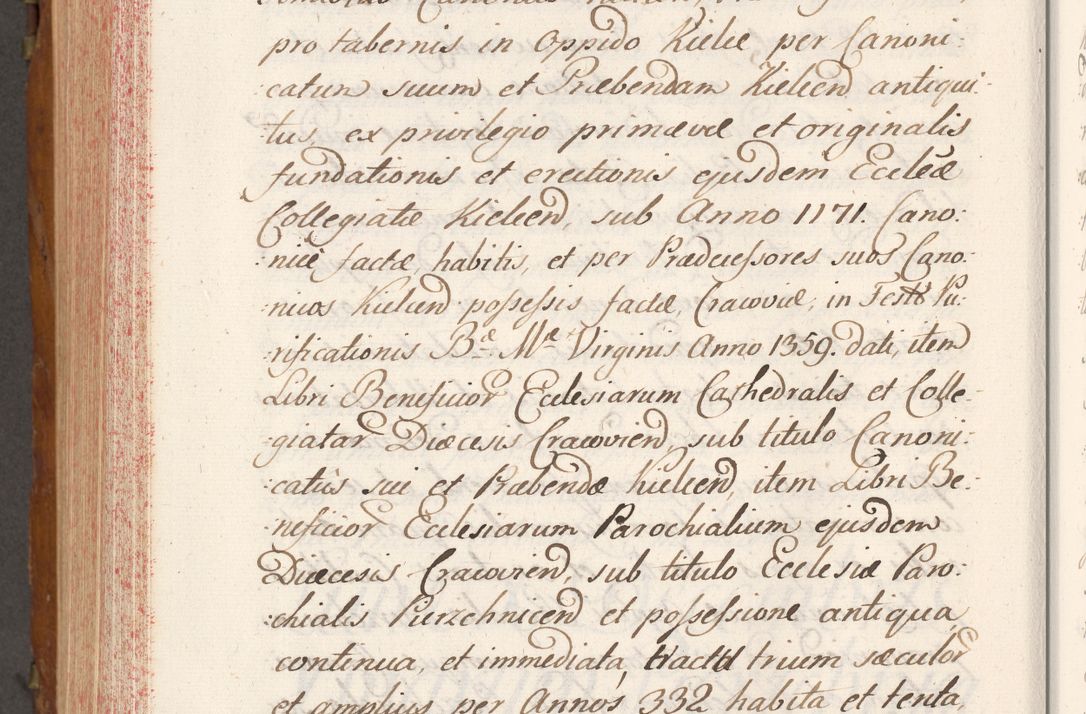 pro tabernis in Oppido Kielce per Canoni:
catum suum et Præbendam Kielcen antiqui:
tus, ex privilegio primævæ et originalis
fundationis et erectionis ejusdem Eccleæ
Collegiatæ Kielcen, sub Anno 1171. Cano:
nicè factæ, habitis, et per Prædecessores suos Cano:
nicos Kielcen possessis factæ, Cracoviæ, in Festo Pu:
rificationis Bæ Mæ Virginis Anno 1359. dati, item
Libri Beneficior Ecclesiarum Cathedralis et Colle:
giatar Diæcesis Cracovien, sub titulo Canoni:
catûs sui et Præbendæ Kielcen, item Libri Be:
neficior Ecclesiarum Parochialium ejusdem
Diæcesis Cracovien, sub titulo Ecclesiæ Paro:
chialis Pierzchnicen et possessione antiqua
continua, et immediata, tractu trium sæculor
et amplius per Annos 332 habita et tenta,